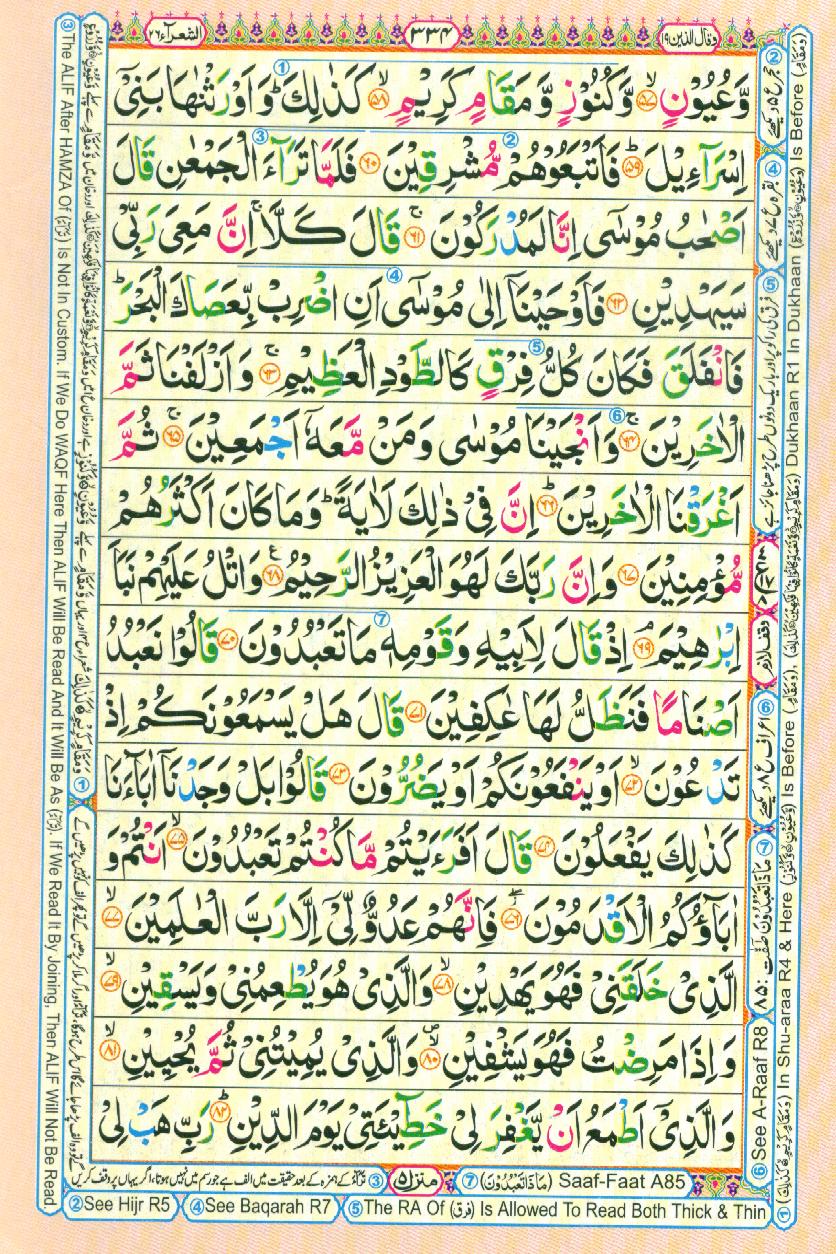 وقال الذین ۱۹
۳۳۴
الشعرآء ۲۶
وَّعُیُوۡنٍ ۙ﴿۵۷﴾ وَّکُنُوۡزٍ وَّمَقَامٍ کَرِیۡمٍ ۙ﴿۵۸﴾ کَذٰلِکَ ؕ وَاَوۡرَثۡنٰہَا بَنِیۡۤ
اِسۡرَآءِیۡلَ ﴿ؕ۵۹﴾ فَاَتۡبَعُوۡہُمۡ مُّشۡرِقِیۡنَ ﴿۶۰﴾ فَلَمَّا تَرَآءَ الۡجَمۡعٰنِ قَالَ
اَصۡحٰبُ مُوۡسٰۤی اِنَّا لَمُدۡرَکُوۡنَ ﴿ۚ۶۱﴾ قَالَ کَلَّا ۚ اِنَّ مَعِیَ رَبِّیۡ
سَیَہۡدِیۡنِ ﴿۶۲﴾ فَاَوۡحَیۡنَاۤ اِلٰی مُوۡسٰۤی اَنِ اضۡرِبۡ بِّعَصَاکَ الۡبَحۡرَ ؕ
فَانۡفَلَقَ فَکَانَ کُلُّ فِرۡقٍ کَالطَّوۡدِ الۡعَظِیۡمِ ﴿ۚ۶۳﴾ وَاَزۡلَفۡنَا ثَمَّ
الۡاٰخَرِیۡنَ ﴿ۚ۶۴﴾ وَاَنۡجَیۡنَا مُوۡسٰی وَمَنۡ مَّعَہٗۤ اَجۡمَعِیۡنَ ﴿ۚ۶۵﴾ ثُمَّ
اَغۡرَقۡنَا الۡاٰخَرِیۡنَ ﴿ؕ۶۶﴾ اِنَّ فِیۡ ذٰلِکَ لَاٰیَۃً ؕ وَمَا کَانَ اَکۡثَرُہُمۡ
مُّؤۡمِنِیۡنَ ﴿۶۷﴾ وَاِنَّ رَبَّکَ لَہُوَ الۡعَزِیۡزُ الرَّحِیۡمُ ﴿۶۸﴾ وَاتۡلُ عَلَیۡہِمۡ نَبَاَ
اِبۡرٰہِیۡمَ ﴿ۘ۶۹﴾ اِذۡ قَالَ لِاَبِیۡہِ وَقَوۡمِہٖ مَا تَعۡبُدُوۡنَ ﴿۷۰﴾ قَالُوۡا نَعۡبُدُ
اَصۡنَامًا فَنَظَلُّ لَہَا عٰکِفِیۡنَ ﴿۷۱﴾ قَالَ ہَلۡ یَسۡمَعُوۡنَکُمۡ اِذۡ
تَدۡعُوۡنَ ﴿ۙ۷۲﴾ اَوۡ یَنۡفَعُوۡنَکُمۡ اَوۡ یَضُرُّوۡنَ ﴿۷۳﴾ قَالُوۡا بَلۡ وَجَدۡنَاۤ اٰبَآءَنَا
کَذٰلِکَ یَفۡعَلُوۡنَ ﴿۷۴﴾ قَالَ اَفَرَءَیۡتُمۡ مَّا کُنۡتُمۡ تَعۡبُدُوۡنَ ﴿ۙ۷۵﴾ اَنۡتُمۡ وَ
اٰبَآؤُکُمُ الۡاَقۡدَمُوۡنَ ﴿۫ۖ۷۶﴾ فَاِنَّہُمۡ عَدُوٌّ لِّیۡۤ اِلَّا رَبَّ الۡعٰلَمِیۡنَ ﴿ۙ۷۷﴾
الَّذِیۡ خَلَقَنِیۡ فَہُوَ یَہۡدِیۡنِ ﴿ۙ۷۸﴾ وَالَّذِیۡ ہُوَ یُطۡعِمُنِیۡ وَیَسۡقِیۡنِ ﴿ۙ۷۹﴾
وَاِذَا مَرِضۡتُ فَہُوَ یَشۡفِیۡنِ ﴿۪ۙ۸۰﴾ وَالَّذِیۡ یُمِیۡتُنِیۡ ثُمَّ یُحۡیِیۡنِ ﴿ۙ۸۱﴾
وَالَّذِیۡۤ اَطۡمَعُ اَنۡ یَّغۡفِرَ لِیۡ خَطِیۡٓئَتِیۡ یَوۡمَ الدِّیۡنِ ﴿ؕ۸۲﴾ رَبِّ ہَبۡ لِیۡ
منزل ۵
⑦ (مَاذَا تَعۡبُدُوۡنَ) Saaf-Faat A85
② See Hijr R5 ④ See Baqarah R7 ⑤ The RA Of (فرق) Is Allowed To Read Both Thick & Thin
⑥ See A-Raaf R8
③ The ALIF After HAMZA Of (تَرَآءَ) Is Not In Custom. If We Do WAQF Here Then ALIF Will Be Read And It Will Be As (تَرَآءَا). If We Read It By Joining, Then ALIF Will Not Be Read.